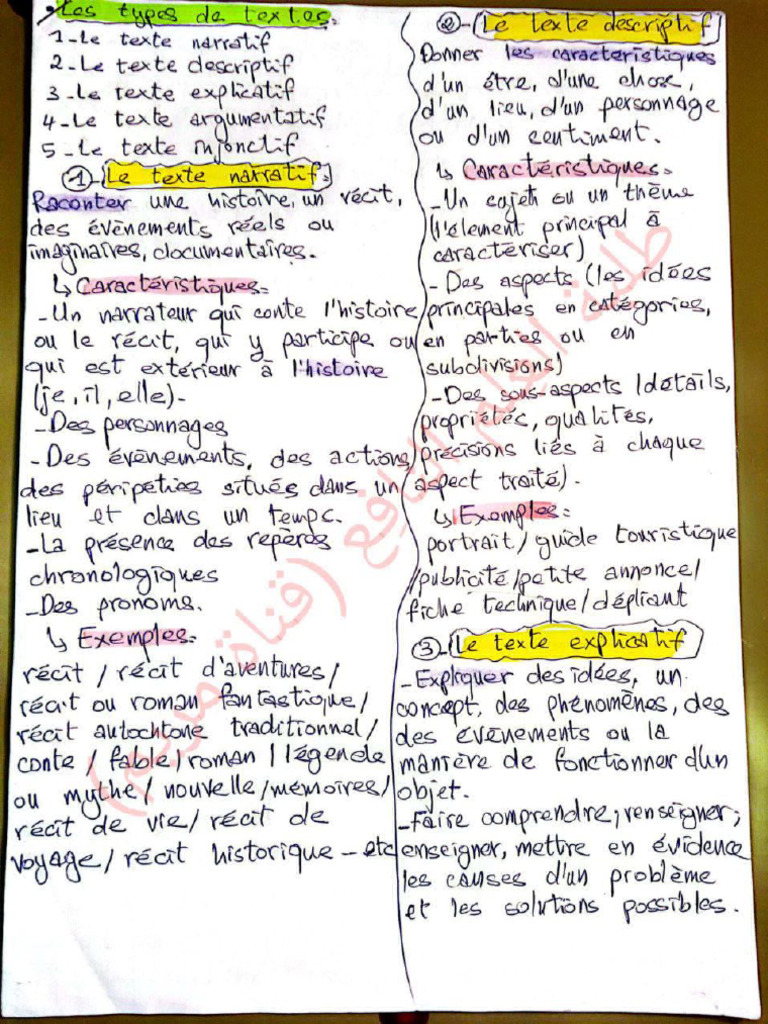 Les types de textes.
1-Le texte narratif
2-Le texte descriptif
3-Le texte explicatif
4-Le texte argumentatif
5-Le texte injonctif
①-Le texte narratif:
Raconter une histoire, un récit,
des évènements réels ou
imaginaires, documentaires.
↳ Caractéristiques:
-Un narrateur qui conte l'histoire
ou le récit, qui y participe ou
qui est extérieur à l'histoire
(je, il, elle)-
-Des personnages
-Des évènements, des actions,
des péripéties situés dans un
lieu et dans un temps.
-La présence des repères
chronologiques
-Des pronoms.
↳ Exemples:
récit / récit d'aventures/
récit ou roman fantastique/
récit autochtone traditionnel/
conte / fable/roman / légende
ou mythe/ nouvelle/mémoires/
récit de vie/ récit de
voyage/ récit historique - etc
②-Le texte descriptif
Donner les caractéristiques
d'un être, d'une chose,
d'un lieu, d'un personnage
ou d'un sentiment.
↳ Caractéristiques:
-Un sujet ou un thème
(l'élement principal à
caractériser)
-Des aspects (les idées
principales en catégories,
en parties ou en
subdivisions)
-Des sous-aspects (détails,
propriétés, qualités,
précisions liés à chaque
aspect traité).
↳ Exemples:
portrait/ guide touristique
/publicité/petite annonce/
fiche technique/dépliant
③-Le texte explicatif
-Expliquer des idées, un
concept, des phénomènes, des
des évènements ou la
manière de fonctionner d'un
objet.
-Faire comprendre, renseigner,
enseigner, mettre en évidence
les causes d'un problème
et les solutions possibles.
طلبة العلم النافع (قناة مريم)